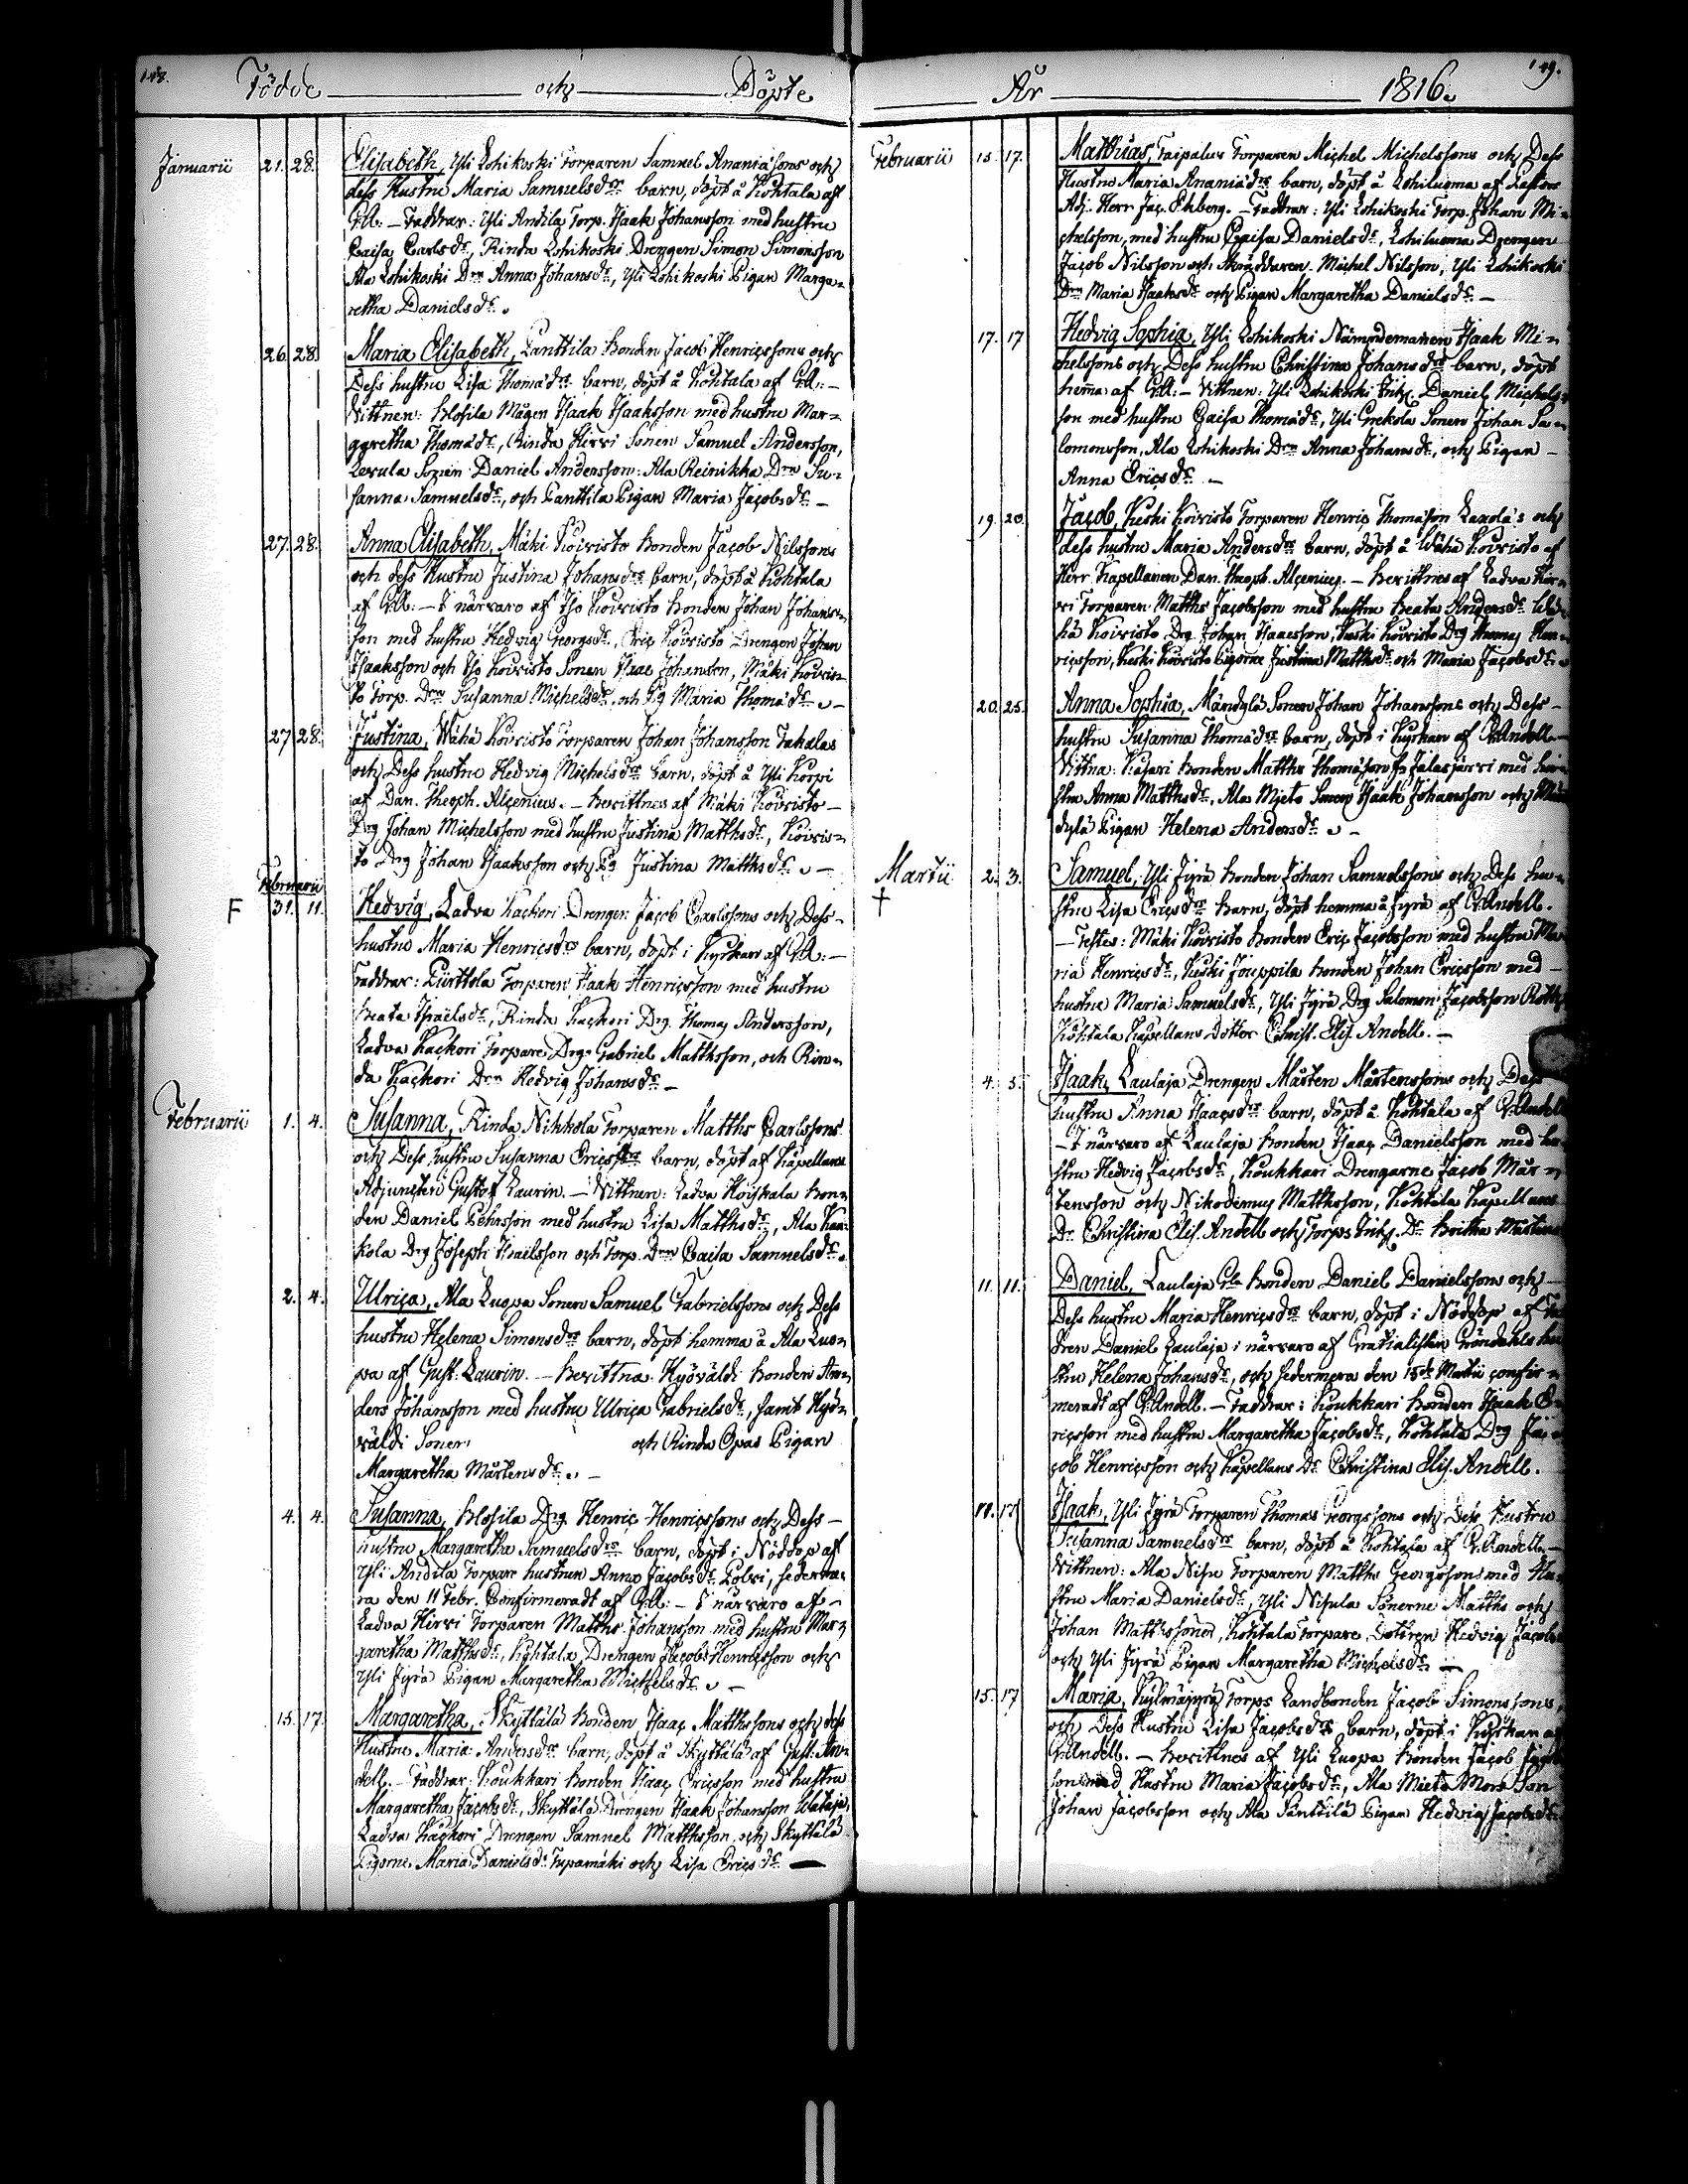 148.
Födde och Döpte
Januarii 21. 28. Elisabeth, Yli Lohikoski Torparen Samuel Ananiæsons och
dess Hustru Maria Samuelsdrs barn, döpt å Kohtala af
G.A: — Faddrar: Yli Andila Torp. Isaak Johansson med hustru
Caisa Carlsdr, Rinda Lohikoski Drengen Simon Simonsson
Ala Lohikoski Drn Anna Johansdr, Yli Lohikoski Pigan Marga-
retha Danielsdr.
26. 28. Maria Elisabeth, Panttila Bonden Jacob Henricssons och
Dess hustru Lisa Thomædrs barn, döpt å Kohtala af G.A: —
Vittnen: Blosila Mågen Isaak Isaaksson med hustru Mar-
garetha Thomædr, Rinda Hirvi Sonen Samuel Andersson,
Daniel Andersson. Ala Reinikka Drn Su-
sanna Samuelsdr, och Panttila Pigan Maria Jacobsdr —
27. 28. Anna Elisabeth, Mäki Koivisto Bonden Jacob Nilssons
och dess Hustru Justina Johansdrs barn, döpt å Kohtala
af G.A: — I närvaro af Iso Koivisto Bonden Johan Johans-
son med hustru Hedvig Georgsdr, Eric Koivisto Drengen Johan
Isaaksson och Iso Koivisto Sonen Isaac Johansson, Mäki Koivis-
to Torp. Drn Susanna Michelsdr. och Pg Maria Thomædr. —
27. 28. Justina, Wähä Koivisto Torparen Johan Johansson Takalas
och Dess hustru Hedvig Michelsdrs barn, döpt å Yli Korpi
af Dan. Theoph. Alcenius. — Bevittnes af Mäki Koivisto —
Drg Johan Michelsson med hustru Justina Matthsdr, Koivis-
to Drg Johan Isaaksson och Pg Justina Matthsdr. —
Februarii
F 31. 11. Hedvig, Ladva Kackori Drengen Jacob Carlssons och Dess —
hustru Maria Henricsdrs barn, döpt i Kyrkan af G.A: —
Faddrar: Pirttola Torparen Isaak Henricsson med hustru
Beata Israelsdr, Rinda Kackori Drg. Thomas Andersson,
Ladva Kackori Torpare Drg. Gabriel Matthsson, och Rin-
da Kackori Drn Hedvig Johansdr —
Februarii 1. 4. Susanna, Rinda Nikkola Torparen Matths Carlssons
och Dess hustru Susanna Ericsdrs barn, döpt af Kapellans
Adjuncten Gustof Laurin. — Vittnen: Ladva Koiskala Bon-
den Daniel Pehrsson med hustru Lisa Matthsdr, Ala Kau-
kola Drg Joseph Israelsson och Torp. Drn Caisa Samuelsdr.
2. 4. Ulrica, Ala Luopa Sonen Samuel Gabrielssons och Dess
hustru Helena Simonsdrs barn, döpt hemma å Ala Luo-
pa af Gust. Laurin. — Bevittna: Hyöväldi Bonden An-
ders Johansson med hustru Ulrica Gabrielsdr, samt Hyö-
väldi Sonen och Rinda Opas Pigan
Margaretha Mårtensdr. —
4. 4. Susanna, Blosila Drg. Henric Henricssons och Dess —
hustru Margaretha Samuelsdrs barn, döpt i Nöddop af
Yli Andila Torpare hustrun Anna Jacobsdr Polvi, sederme-
ra den 11 Febr. Confirmeradt af G.A: — I närvaro af —
Ladva Hirvi Torparen Matths Johansson med hustru Mar-
garetha Matthsdr, Kohtala Drengen Jacob Henricsson och
Yli Jyrä Pigan Margaretha Michelsdr. —
15. 17. Margaretha, Skyttälä Bonden Isaac Matthssons och dess
Hustru Maria Andersdrs barn, döpt å Skyttälä af Gust. An-
dell. — Faddrar: Koukkari Bonden Isaac Ericsson med hustru
Margaretha Jacobsdr, Skyttälä Drengen Isaak Johansson Wataja,
Ladva Kackori Drengen Samuel Matthsson och Skyttälä
Pigorne Maria Danielsdr Tupamäki och Lisa Ericsdr —
149.
År 1816.
Februarii 15. 17. Matthias, Taipalus Torparen Michel Michelssons och Dess
Hustru Maria Ananiædrs barn, döpt å Lohiluoma af Pastors
Adj. Herr Jac. Ekberg. — Faddrar: Yli Lohikoski Torp. Johan Mi-
chelsson, med hustru Caisa Danielsdr, Lohiluoma Drengen
Jacob Nilsson och Skräddaren Michel Nilsson, Yli Lohikoski
Drn Maria Isaaksdr och Pigan Margaretha Danielsdr —
17. 17 Hedvig Sophia, Yli Lohikoski Nämndemannen Isaak Mi-
chelssons och Dess hustru Christina Johansdrs barn, döpt
hemma af G.A: — Vittnen: Yli Lohikoski Inh. Daniel Michels-
son med hustru Caisa Thomædr, Yli Grekola Sonen Johan Sa-
lomonsson, Ala Lohikoski Drn Anna Johansdr, och Pigan —
Anna Ericsdr —
19. 20. Jacob, Keski Koivisto Torparen Henric Thomæson och
dess hustru Maria Andersdrs barn, döpt å Wähä Koivisto af
Herr Kapellanen Dan. Theoph. Alcenius. — Bevittnes af Ladva Hir-
vi Torparen Matths Jacobsson med hustru Beata Andersdr, Wä-
hä Koivisto Drg. Johan Isaacsson, Keski Koivisto Drg Thomas Hen-
ricsson, Keski Koivisto Pigorne Justina Matthsdr och Maria Jacobsdr.
20. 25. Anna Sophia, Mändylä Sonen Johan Johanssons och Dess —
hustru Susanna Thomædrs barn, döpt i Kyrkan af G. Andell —
Vittna: Kasari Bonden Matths Thomæson fr. Jalasjärvi med hu-
stru Anna Matthsdr, Ala Mieto Sonen Isaak Johansson och Män-
dylä Pigan Helena Andersdr. —
Martii 2. 3. Samuel, Yli Jyrä Bonden Johan Samuelssons och Dess hu-
† stru Lisa Ericsdrs Barn, döpt hemma å Jyrä af G. Andell.
— Testes: Mäki Koivisto Bonden Eric Jacobsson med hustru Ma-
ria Henricsdr, Keski Jouppila Bonden Johan Ericsson med —
hustru Maria Samuelsdr, Yli Jyrä Drg Salomon Jacobsson
Kohtala Kapellans dotter Christ. Elis. Andell. —
4. 5. Isaak, Laulaja Drengen Mårten Mårtenssons och Dess
hustru Anna Isaacsdrs barn, döpt å Kohtala af G. Andell
— I närvaro af Laulaja Bonden Isaac Danielsson med hu-
stru Hedvig Jacobsdr, Koukkari Drengarne Jacob Mår-
tensson och Nikodemus Matthsson, Kohtala Kapellans
Dr Christina Elis. Andell och Torps Inh. Dr Britha Mårtens
11. 11. Daniel, Laulaja Bonden Daniel Danielssons och —
Dess hustru Maria Henricsdrs barn, döpt i Nöddop af Fa-
dren Daniel Laulaja i närvaro af Gratialistan Gröndahls hu-
stru Helena Johansdr, och sedermera den 15de Martii confir-
meradt af G. Andell. — Faddrar: Koukkari Bonden Isaak E-
ricsson med hustru Margaretha Jacobsdr, Kohtala Drg Ja-
cob Henricsson och Kapellans Dr Christina Elis. Andell.
17. Isaak, Yli Jyrä Torparen Thomas Georgssons och Dess Hustru
Susanna Samuelsdrs barn, döpt å Kohtala af G. Andell. —
Vittnen: Ala Torparen Matths Georgssons med Hu-
stru Maria Danielsdr, Yli Nisula Sönerne Matths och
Johan Matthssöner, Kohtala Torpare Dottren Hedvig Jacobs
och Yli Jyrä Pigan Margaretha Michelsdr —
15. 17 Maria, Kylmäjyrä Torps Landbonden Jacob Simonssons,
och Dess Hustru Lisa Jacobsdrs barn, döpt i Kyrkan af
G. Andell. — Bevittnes af Yli Luopa Bonden Jacob
son med Hustru Maria Jacobsdr, Ala Mieto Son
Johan Jacobsson och Ala Panttila Pigan Hedvig Jacobsdr.